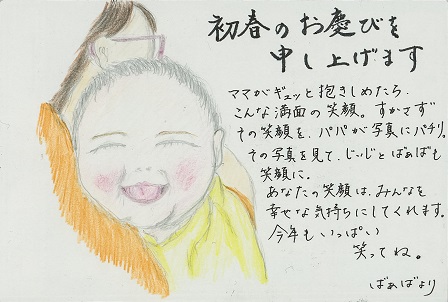 初春のお慶びを
申し上げます
ママがギュッと抱きしめたら、
こんな満面の笑顔。すかさず
その笑顔を、パパが写真にパチリ。
その写真を見て、じぃじとばぁばも
笑顔に。
あなたの笑顔は、みんなを
幸せな気持ちにしてくれます。
今年もいっぱい
笑ってね。
ばぁばより